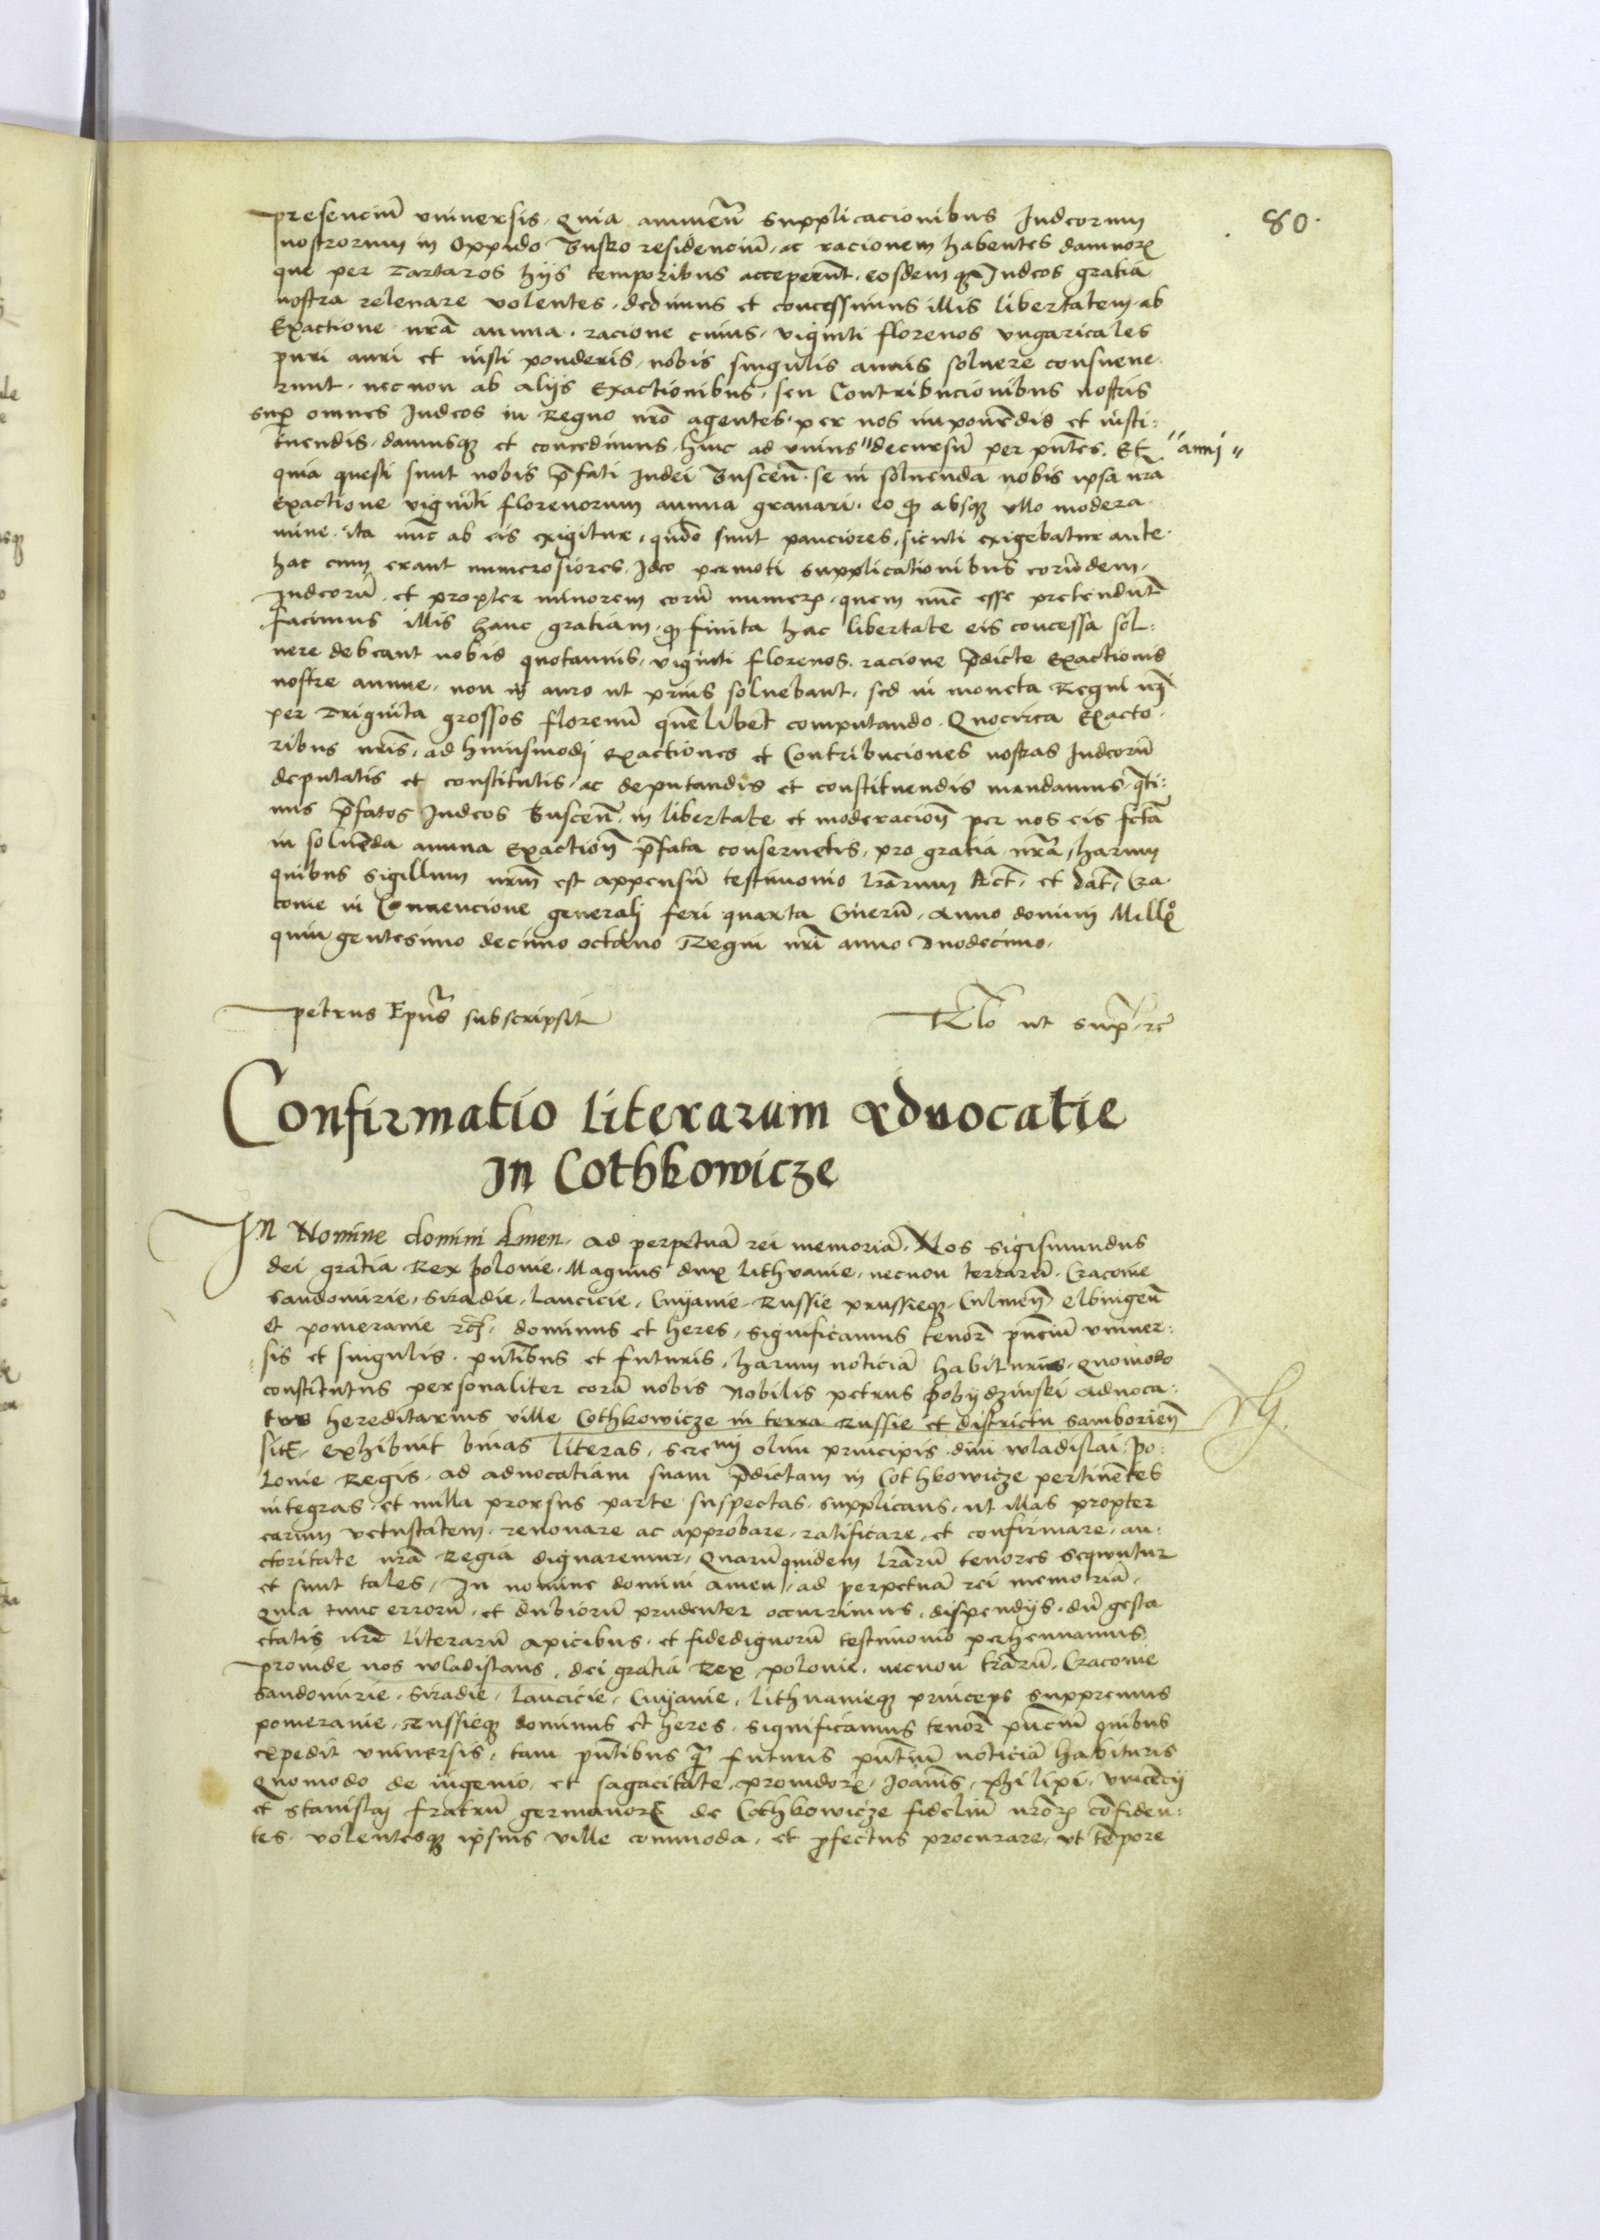 80.
presenciũ vniuersis. Quia annuentes̃ supplicacionibus Iudeorum
nostrorum in Oppido Busko residenciũ. ac racionem habentes damnorꝫ
que per Tartaros hijs temporibus acceperũt. eosdemqꝫ Iudeos gratia
nostra releuare volentes. dedimus et concessimus illis libertatem ab
Exactione nrã annua. racione cuius. viginti florenos vngaricales
puri auri et iusti ponderis. nobis singulis annis soluere consueue
runt. necnon ab alijs Exactionibus. seu Contribucionibus nostris
sup̃ omnes Iudeos in Regno nrõ agentes. per nos imponendis et insti:
tuendis. damusqꝫ et concedimus. hinc ad vnius "decursũ per pñtes. Et "anni"
quia questi sunt nobis p̃fati Iudei Buscen̄. se in soluenda nobis ipsa nrã
exactione viginti florenorum annua grauari. eo qꝫ absqꝫ vllo modera
mine ita nũc ab eis exigitur. qñdo sunt pauciores. sicuti exigebatur ante
hac cum erant numerosiores. Ideo permoti supplicationibus eorũdem
Iudeorũ. et propter minorem eorũ numerꝫ. quem nũc esse pretendũt
facimus illis hanc gratiam. qꝫ finita hac libertate eis concessa sol:
uere debeant nobis quotannis. viginti florenos. racione p̃dicte Exactionis
nostre annue. non in auro ut prius soluebant. sed in moneta Regni nrĩ
per Triginta grossos florenũ quẽlibet computando. Quocirca Exacto
ribus nrĩs. ad huiusmodj exactiones et Contribuciones nostras Iudeorũ
deputatis et constitutis. ac deputandis et constituendis mandamus. q̃ti:
nus p̃fatos Iudeos Buscen̄. in libertate et moderacioñ per nos eis fctã
in soluẽda annua Exactioñ p̃fata conseruetis. pro gratia nrã. harum
quibus sigillum nrm̃ est appensũ testimonio lrãrum Act̃. et dat̃. Cra
couie in Conuencione generalj feri quarta Cinerũ. Anno domini Millꝫo
quingentesimo decimo octauo Regni nrĩ anno Duodecimo.
Petrus Epũs subscripsit
Rlõ ut sup̃ rc̃
Confirmatio literarum aduocatie
In Cothkowicze
In Nomine domini Amen. ad perpetuã rei memoriã. Nos Sigismundus
dei gratia Rex polonie. Magnus dux Lithvanie. necnon terrarũ. Cracouie
Sandomirie. Siradie. Lancicie. Cuyauie. Russie prussieqꝫ. Culmeñ Elbingeñ
et pomeranie rcꝫ. dominus et heres. significamus tenorẽ pñciũ vniuer:
sis et singulis. pñtibus et futuris. harum noticiã habituris. Quomodo
constitutus personaliter corã nobis Nobilis petrus pohydzinski aduoca:
tus hereditarius ville Cothkowicze in terra Russie et districtu Samborieñ
sitẽ. exhibuit binas literas. sereni olim principis dñi wladislai. po:
lonie Regis. ad aduocatiam suam p̃dictam in Cothkowicze pertinẽtes
integras et nulla prorsus parte suspectas. supplicans. ut illas propter
earum vetustatem. renouare ac approbare. ratificare. et confirmare. au:
ctoritate nrã Regia dignaremur. Quarũquidem lrãrũ tenores sequntur
et sunt tales. In nomine domini amen. ad perpetuã rei memoriã.
Quia tunc errorũ. et dubiorũ prudenter occurrimus. dispendijs. dũ gesta
etatis nrẽ literarũ apicibus. et fidedignorũ testimonio perhennamus
proinde nos wladislaus. dei gratia Rex. polonie. necnon trãrũ. Cracouie
Sandomirie. Siradie. Lancicie. Cuyauie. Lithuanieqꝫ princeps suppremus
pomeranie. Russieqꝫ dominus et heres. significamus tenorẽ pñciũ quibus
expedit vniuersis. tam pñtibus q̃ futuris pñtiũ noticiã habituris
Quomodo de ingenio. et sagacitate. prouidorꝫ. Ioañis. philipi. vincẽcij
et Stanislaj fratrũ germanorꝫ de Cothkowicze fideliũ nrõrꝫ cõfiden:
tes. volentesqꝫ ipsius ville commoda. et p̃fectus procurare. vt tẽpore